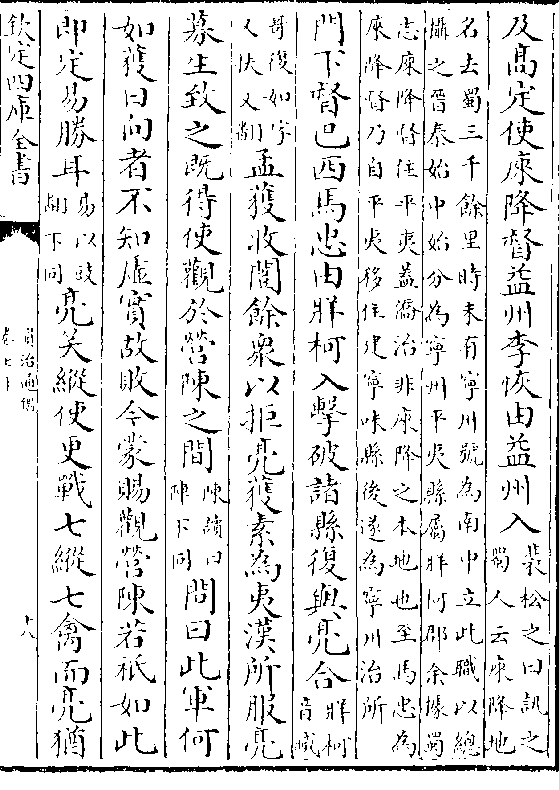 及高定使庲降督益州李恢由益州入裴松之曰訊之蜀人云庲降地
名去蜀三千餘里時未有寧州號為南中立此職以總
攝之晉泰始中始分為寧州平夷縣屬牂柯郡余據蜀
志庲降督住平夷蓋僑治非庲降之本地也至馬忠為
庲降督乃自平夷移住建寧味縣後遂為寧州治所
門下督巴西馬忠由牂柯入擊破諸縣復與亮合牂柯音臧
哥復如字又扶又翻孟獲收闓餘衆以拒亮獲素為夷漢所服亮
募生致之既得使觀於營陳之間陳讀曰陣下同問曰此軍何
如獲曰向者不知虛實故敗今蒙賜觀營陳若祇如此
即定易勝耳易以豉翻下同亮笑縱使更戰七縱七禽而亮猶
欽定四庫全書
資治通鑑
卷七十
十八